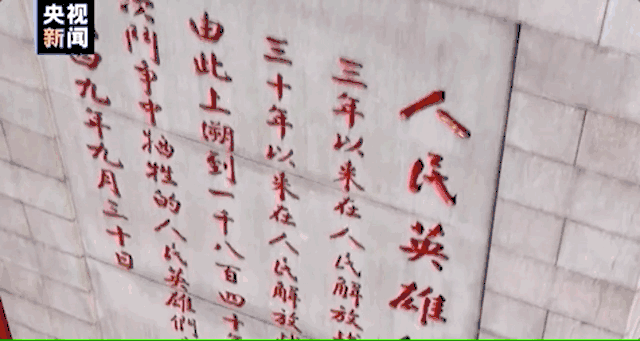 央视
新闻
人民英雄
三年以来在人民解放
三十年以来在人民解放
由此上溯到一千八百四十
斗争中牺牲的人民英雄們
九年九月三十日